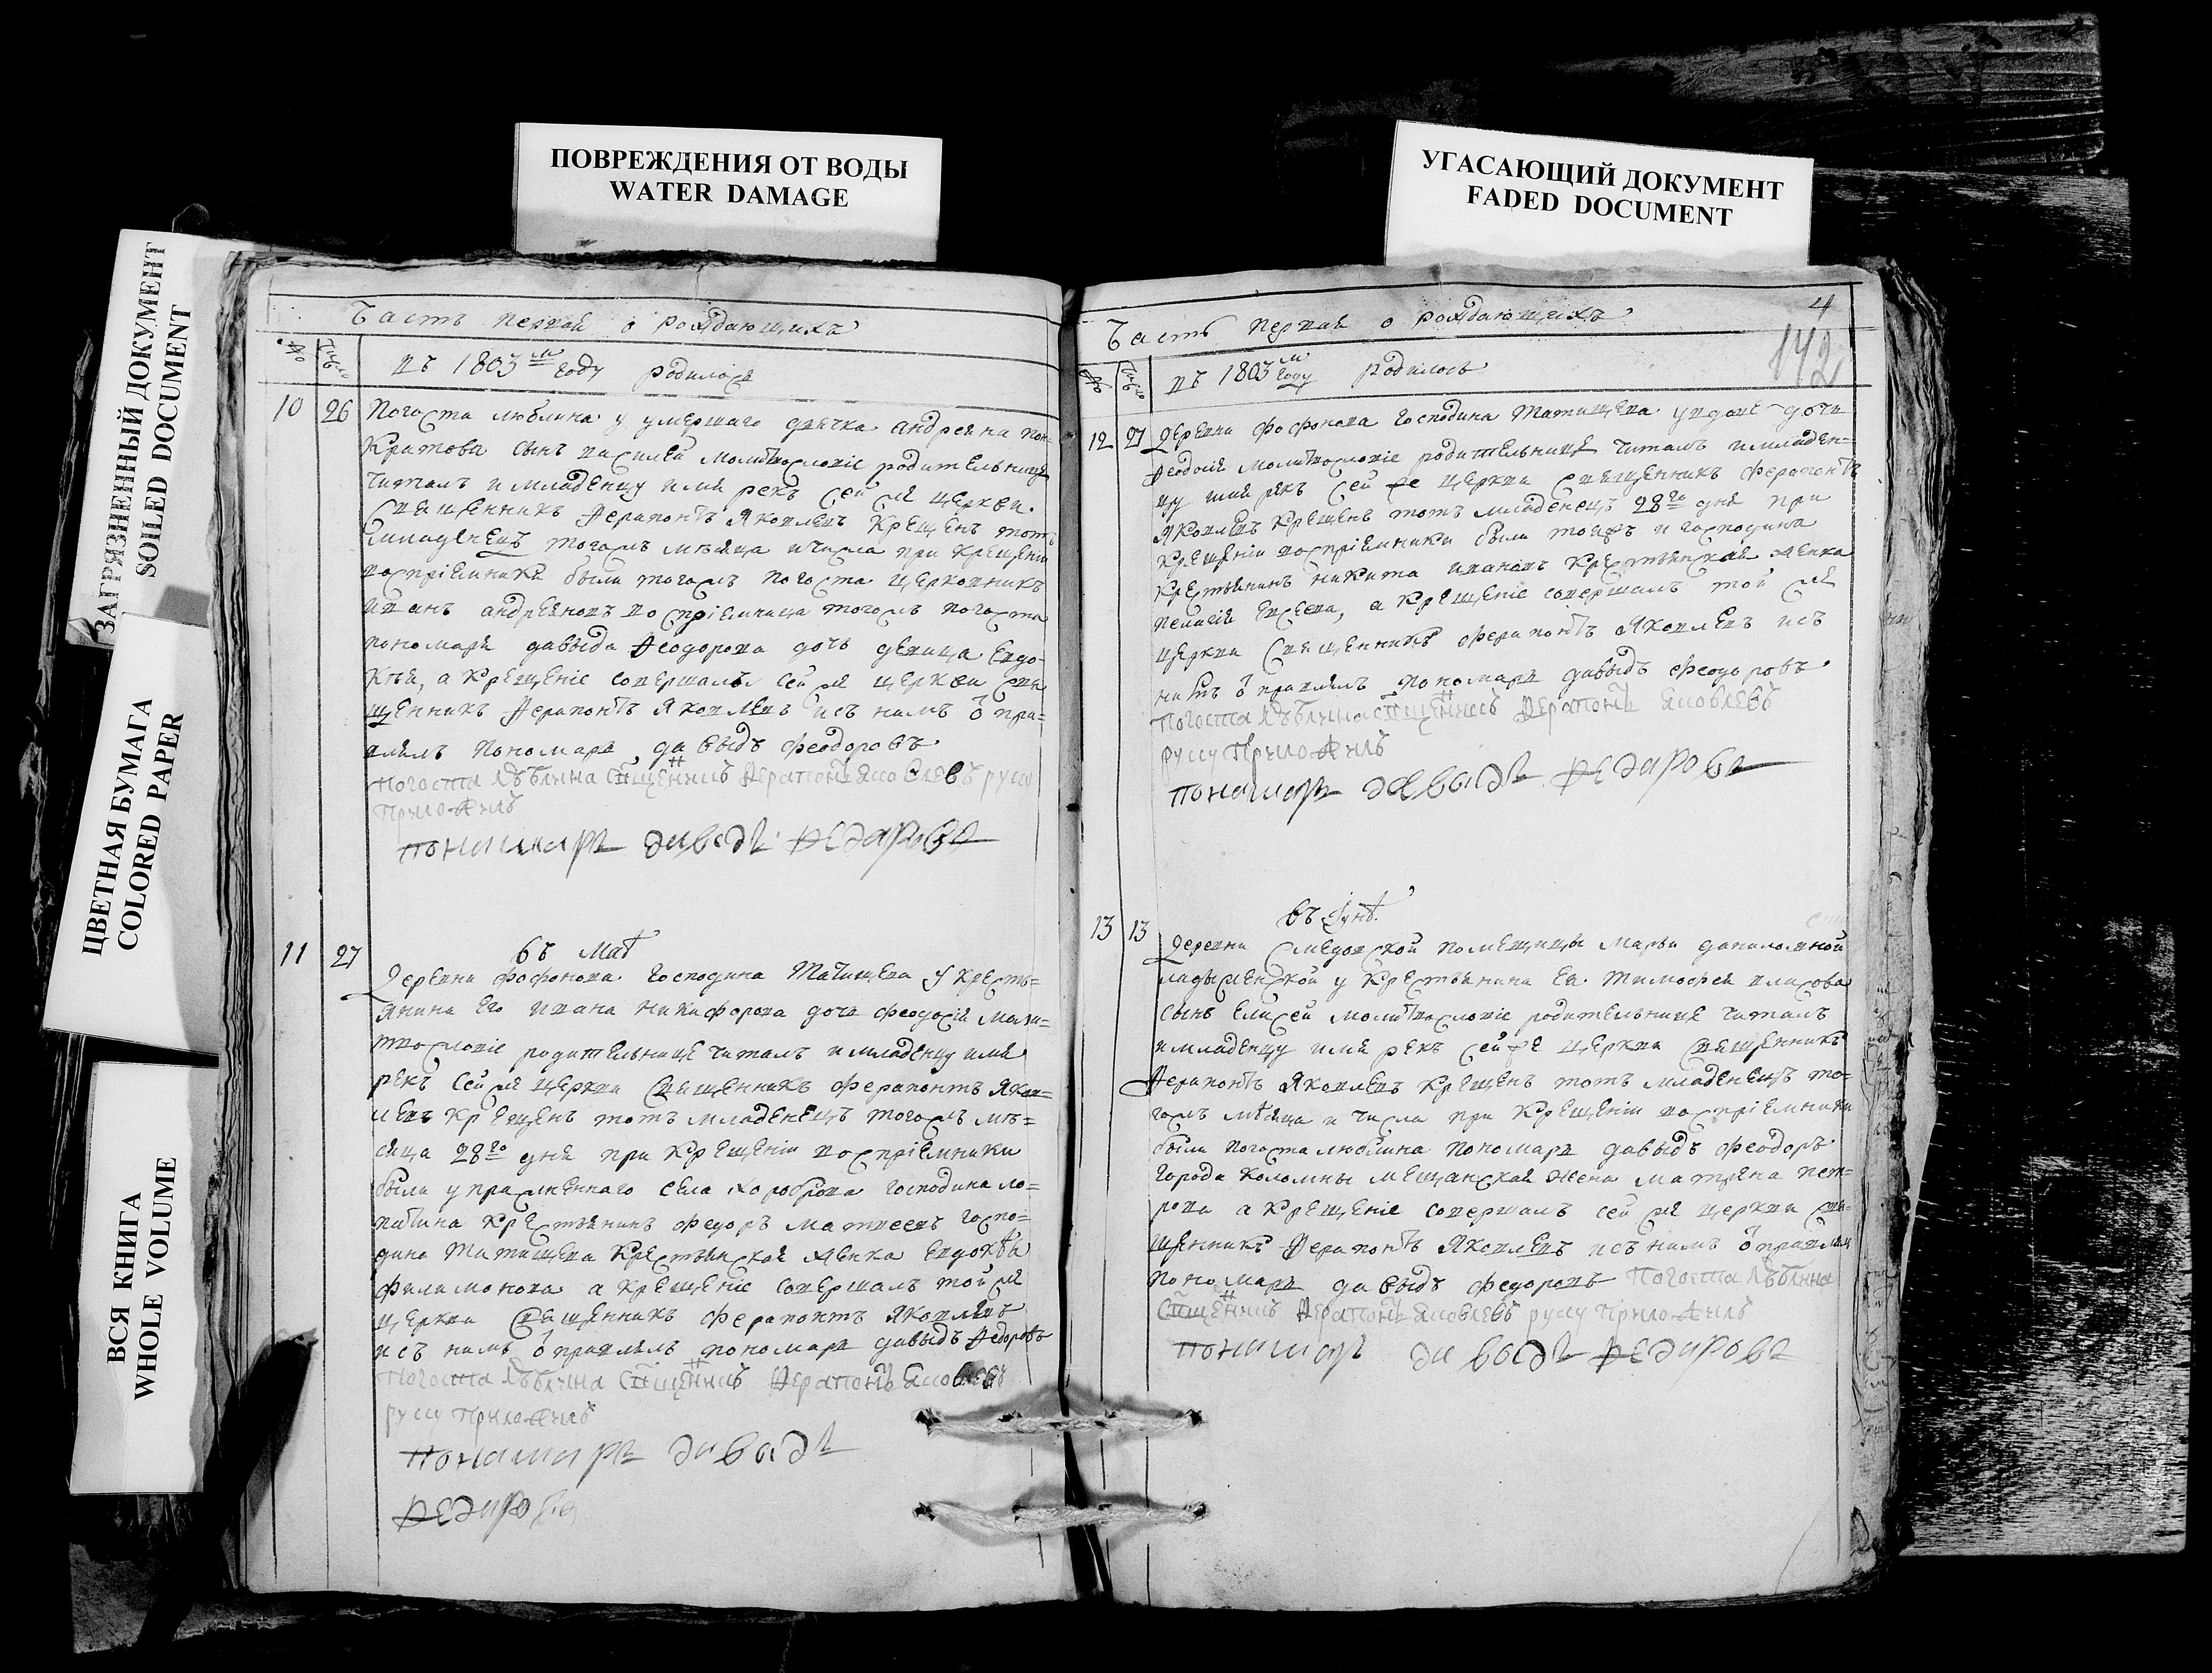 ПОВРЕЖДЕНИЯ ОТ ВОДЫ
WATER DAMAGE
УГАСАЮЩИЙ ДОКУМЕНТ
FADED DOCUMENT
ЗАГРЯЗНЕННЫЙ ДОКУМЕНТ
SOILED DOCUMENT
ЦВЕТНАЯ БУМАГА
COLORED PAPER
ВСЯ КНИГА
WHOLE VOLUME
Часть первая о рождающихъ
№ Число въ 1803м году родилося
10 26 Погоста люблина у умершаго дьячка андреяна пон-
кратова сынъ василей молитвословіе родительнице
читалъ и младенцу имя рекъ сей же церкви
священникъ Ѳерапонтъ Яковлевъ крещенъ тотъ
младенецъ тогожъ мѣсяца и числа при крещеніи
воспріемники были тогожъ погоста церковникъ
иванъ андреяновъ воспріемница тогожъ погоста
пономаря давыда Ѳеодорова дочь девица Евдо-
кѣя, а крещеніе совершалъ сей же церкви свя
щенникъ Ѳерапонтъ Яковлевъ и съ нимъ ѻ пра-
влялъ пономарь давыдъ феодоровъ
погоста люблина сщенникъ Ѳерапонтъ Яковлевъ руку
приложилъ
понамарь давыдъ Ѳедаровъ
въ маѣ
11 27 Деревни фофонова господина Татищева у кресть=
янина Его ивана никифорова дочь феодосія моли=
твословіе родительнице читалъ и младенцу имя
рекъ сей же церкви священникъ ферапонтъ Яков=
левъ крещенъ тотъ младенецъ тогожъ мѣ=
сяца 28го дня при крещеніи воспріемники
были упраженнаго села хороброва господина ло=
крестьянинъ федоръ матвеевъ госпо=
дина татищева крестьянская женка евдокѣя
филимонова а крещеніе совершалъ той же
церкви священникъ ферапонтъ Яковлевъ
и съ нимъ ѻ правлялъ пономарь давыдъ Ѳедоровъ
погоста люблина сщенникъ Ѳерапонтъ Яковлевъ
руку приложилъ
понамарь давыдъ
Ѳедаровъ
4
142
Часть первая о рождающихъ
№ Число въ 1803м году родилось
12 27 Деревни фофонова господина татищева у вдове дочь
Ѳеодосія молитвословіе родительнице читалъ и младен=
цу имя рекъ сей же церкви священникъ ферапонтъ
Яковлевъ крещенъ тотъ младенецъ 28го дня при
крещеніи воспріемники были тогожъ и господина
крестьянинъ никита ивановъ крестьянская женка
пелагія евсеева, а крещеніе совершалъ той же
церкви священникъ ферапонтъ Яковлевъ и съ
нимъ ѻ правлялъ пономарь давыдъ феодоровъ
погоста люблина сщенникъ Ѳерапонтъ Яковлевъ
руку приложилъ
понамарь давыдъ Ѳедаровъ
въ Іунѣ
13 13 Деревни Смедовской помещицы марьи даниловной
у крестьянина Ея тимофея власова
сынъ елисей молитвословіе родительнице читалъ
и младенцу имя рекъ сей же церкви священникъ
Ѳерапонтъ Яковлевъ крещенъ тотъ младенецъ то=
гожъ мѣсяца и числа при крещеніи воспріемники
были погоста люблина пономарь давыдъ феодоръ
города коломны мещанская жена матрена пет=
рова а крещеніе совершалъ сей же церкви свя=
щенникъ Ѳерапонтъ Яковлевъ и съ нимъ ѻ правлялъ
пономарь давыдъ федоровъ погоста люблина
сщенникъ Ѳерапонтъ Яковлевъ руку приложилъ
понамарь давыдъ Ѳедаровъ